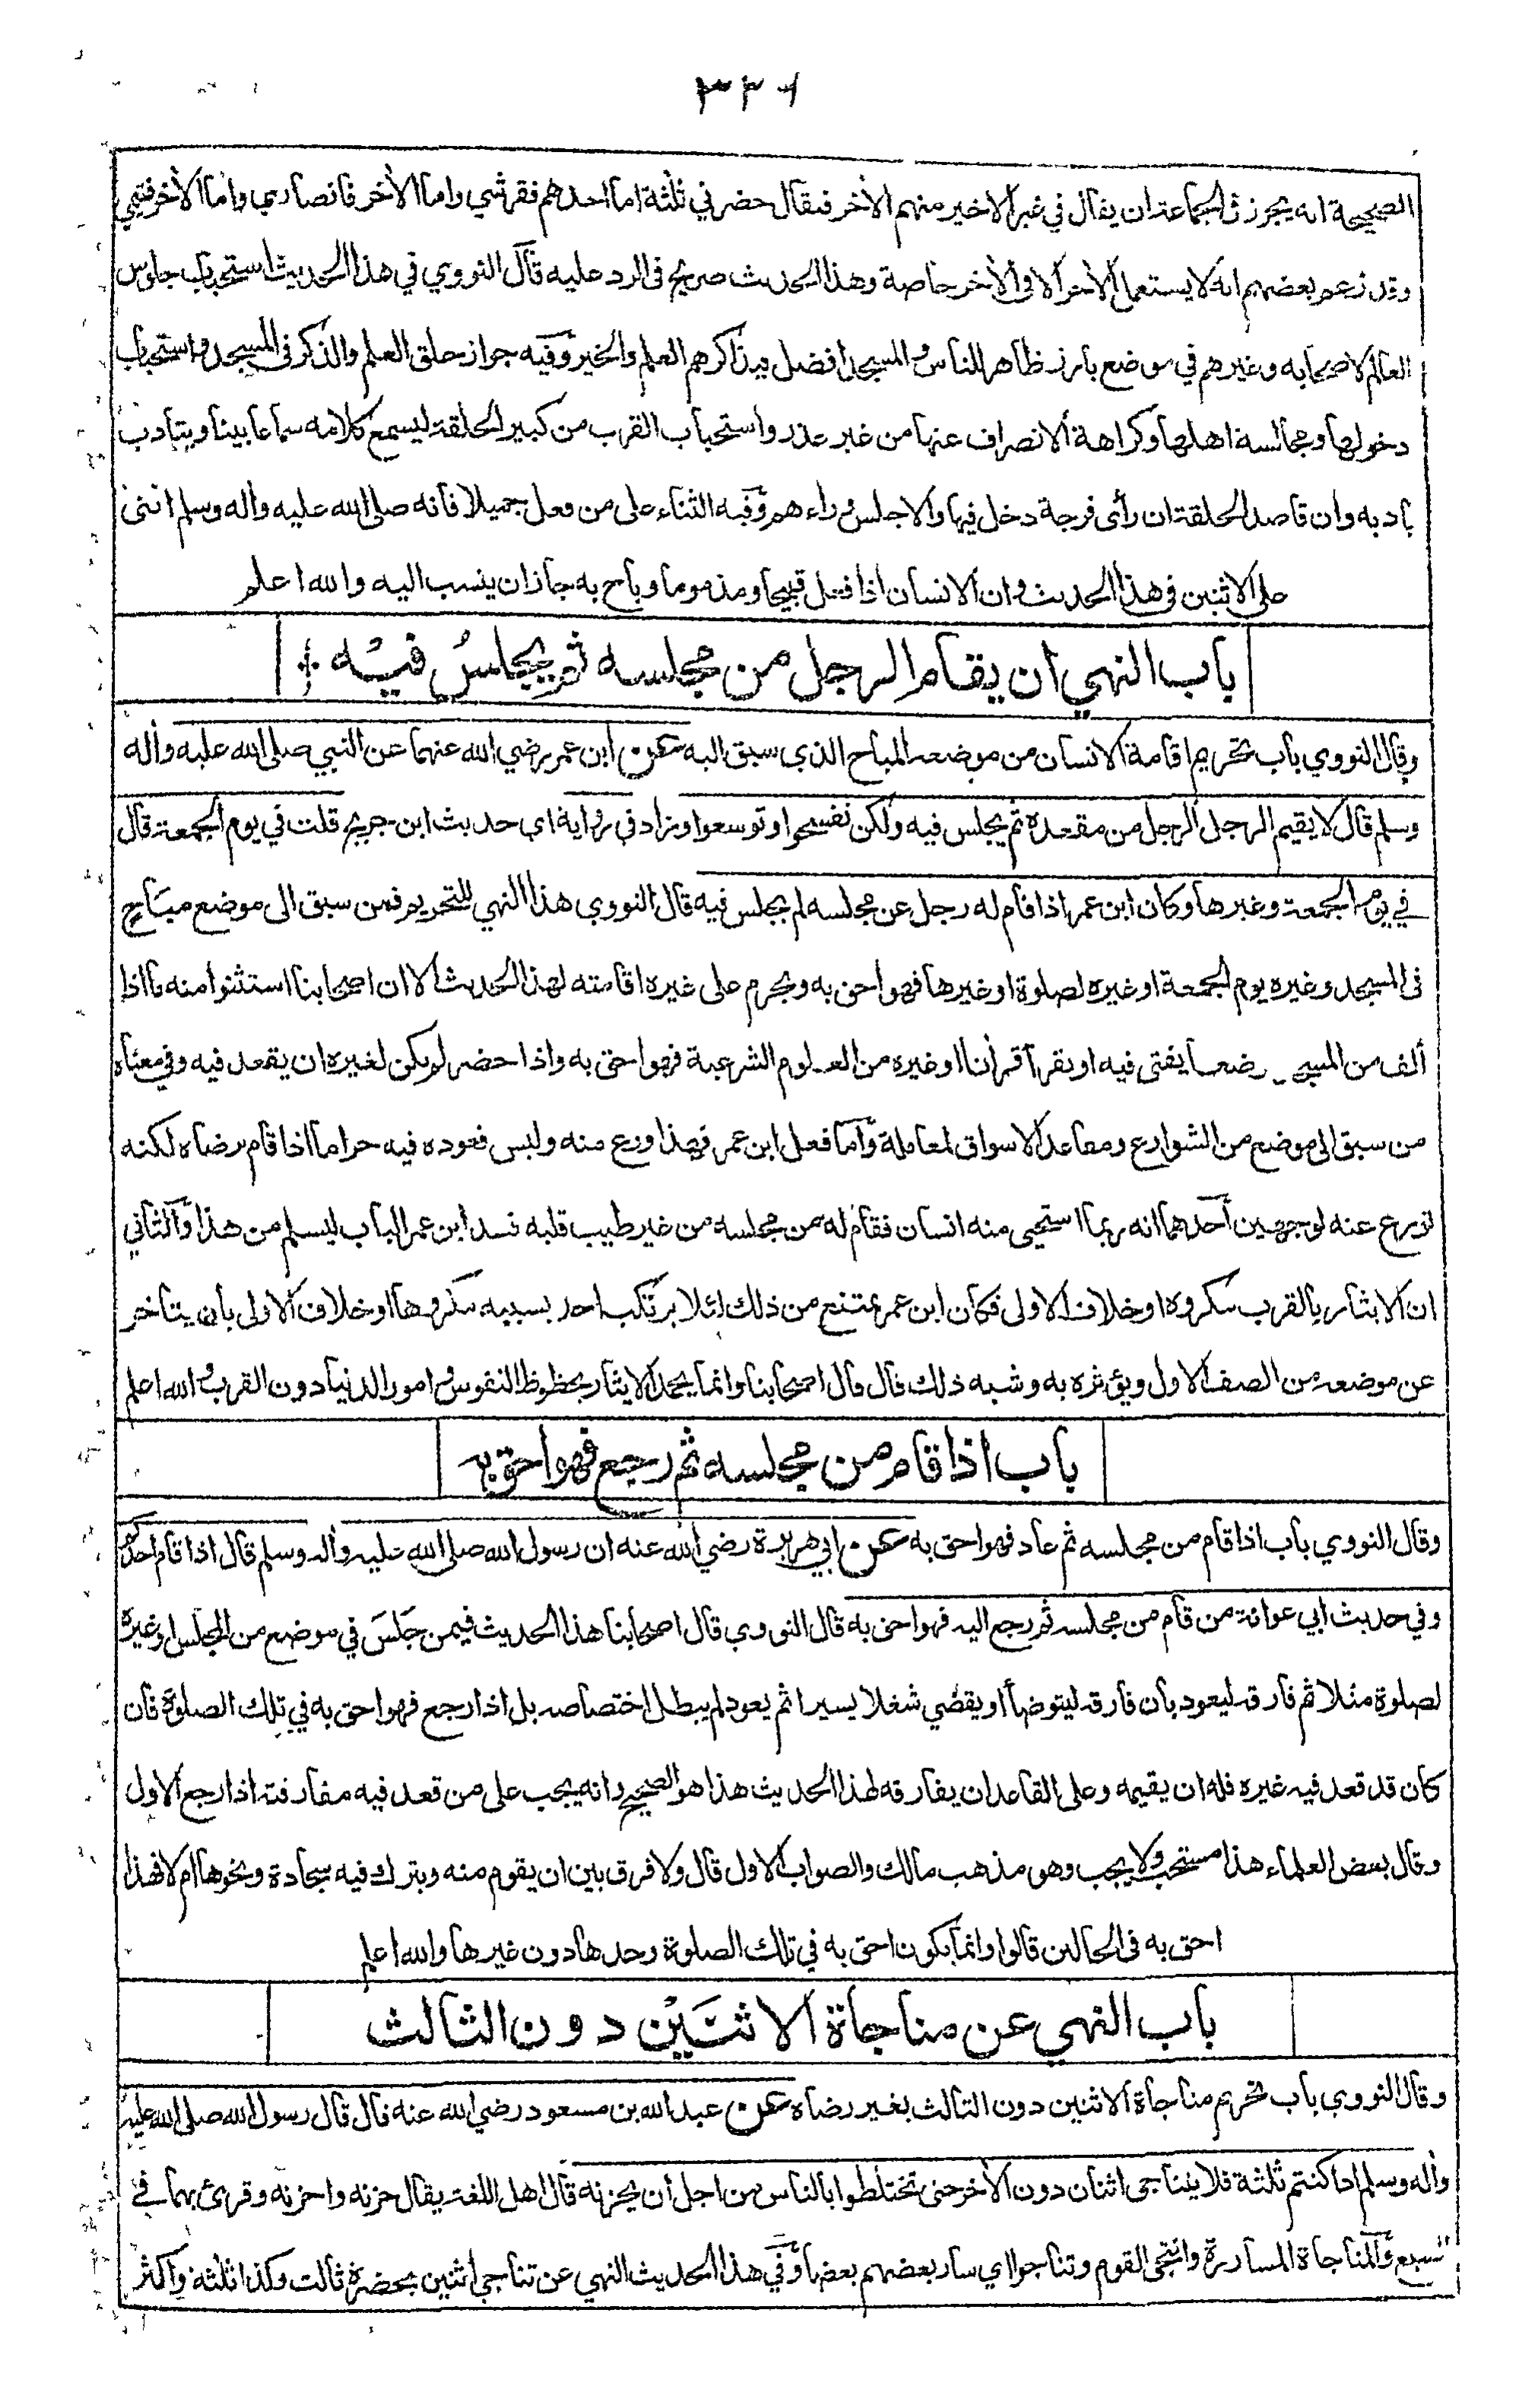 ٣٣١
الصحيحة انه يجوز في الجماعة ان يقال في غير الاخير منهم الأخر فيقال حضرني ثلثة اما احدهم فقرشي واما الأخر فانصاري واما الأخر فتيمي
وقد زعم بعضهم انه لا يستعمل الأخر الا في الأخر خاصة وهذا الحديث صريح في الرد عليه قال النووي في هذا الحديث استحباب جلوس
العالم لاصحابه وغيرهم في موضع بارز ظاهر للناس والمسجد افضل فيذاكرهم العلم والخير وفيه جواز حلق العلم والذكر في المسجد واستحباب
دخولها ومجالسة اهلها وكراهة الانصراف عنها من غير عذر واستحباب القرب من كبير الحلقة ليسمع كلامه سماعا بينا ويتادب
بادبه وان قاصد الحلقة ان رأى فرجة دخل فيها والا جلس وراءهم وفيه الثناء على من فعل جميلا فانه صلى الله عليه وأله وسلم اثنى
على الاثنين في هذا الحديث وان الانسان اذا فعل قبيحا ومذموما وباح به جاز ان ينسب اليه والله اعلم
باب النهي ان يقام الرجل من مجلسه ثم يجلس فيه
وقال النووي باب تحريم اقامة الانسان من موضعه المباح الذي سبق اليه عن ابن عمر رضي الله عنهما عن النبي صلى الله عليه وأله
وسلم قال لا يقيم الرجل الرجل من مقعده ثم يجلس فيه ولكن تفسحوا وتوسعوا وزاد في رواية اي حديث ابن جريج قلت في يوم الجمعة قال
في يوم الجمعة وغيرها وكان ابن عمر اذا قام له رجل عن مجلسه لم يجلس فيه قال النووي هذا النهي للتحريم فمن سبق الى موضع مباح
في المسجد وغيره يوم الجمعة او غيره لصلوة او غيرها فهو احق به ويحرم على غيره اقامته لهذا الحديث الا ان اصحابنا استثنوا منه ما اذا
ألف من المسجد موضعا يفتي فيه او يقرأ قرأنا او غيره من العلوم الشرعية فهو احق به واذا حضر لم يكن لغيره ان يقعد فيه وفي معناه
من سبق الى موضع من الشوارع ومقاعد الاسواق لمعاملة وأما فعل ابن عمر فهذا ورع منه وليس قعوده فيه حراما اذا قام برضاه لكنه
تورع عنه لوجهين أحدهما انه ربما استحيى منه انسان فقام له من مجلسه من غير طيب قلبه فسد ابن عمر الباب ليسلم من هذا والثاني
ان الايثار بالقرب مكروه او خلاف الاولى فكان ابن عمر يمتنع من ذلك لئلا يرتكب احد بسببه مكروها او خلاف الاولى بان يتأخر
عن موضعه من الصف الاول ويؤثره به وشبه ذلك قال قال اصحابنا وانما يحمد الايثار بحظوظ النفوس وامور الدنيا دون القرب والله اعلم
باب اذا قام من مجلسه ثم رجع فهو احق به
وقال النووي باب اذا قام من مجلسه ثم عاد فهو احق به عن ابي هريرة رضي الله عنه ان رسول الله صلى الله عليه وأله وسلم قال اذا قام احدكم
وفي حديث ابي عوانة من قام من مجلسه ثم رجع اليه فهو احق به قال النووي قال اصحابنا هذا الحديث فيمن جَلَسَ في موضع من المجلس او غيره
لصلوة مثلا ثم فارقه ليعود بان فارقه ليتوضأ او يقضي شغلا يسيرا ثم يعود لم يبطل اختصاصه بل اذا رجع فهو احق به في تلك الصلوة فان
كان قد قعد فيه غيره فله ان يقيمه وعلى القاعد ان يفارقه لهذا الحديث هذا هو الصحيح وانه يجب على من قعد فيه مفارقته اذا رجع الاول
وقال بعض العلماء هذا مستحب ولا يجب وهو مذهب مالك والصواب الاول قال ولا فرق بين ان يقوم منه ويترك فيه سجادة ونحوها ام لا فهذا
احق به في الحالين قالوا وانما يكون احق به في تلك الصلوة وحدها دون غيرها والله اعلم
باب النهي عن مناجاة الاثنَيْن دون الثالث
وقال النووي باب تحريم مناجاة الاثنين دون الثالث بغير رضاه عن عبد الله بن مسعود رضي الله عنه قال قال رسول الله صلى الله عليه
وأله وسلم اذا كنتم ثلثة فلا يتناجى اثنان دون الأخر حتى تختلطوا بالناس من اجل أن يحزنه قال اهل اللغة يقال حزنه واحزنه وقرئ بهما في
السبع والمناجاة المسارة وانتجى القوم وتناجوا اي سار بعضهم بعضا وفي هذا الحديث النهي عن تناجي اثنين بحضرة ثالث وكذا ثلثة واكثر